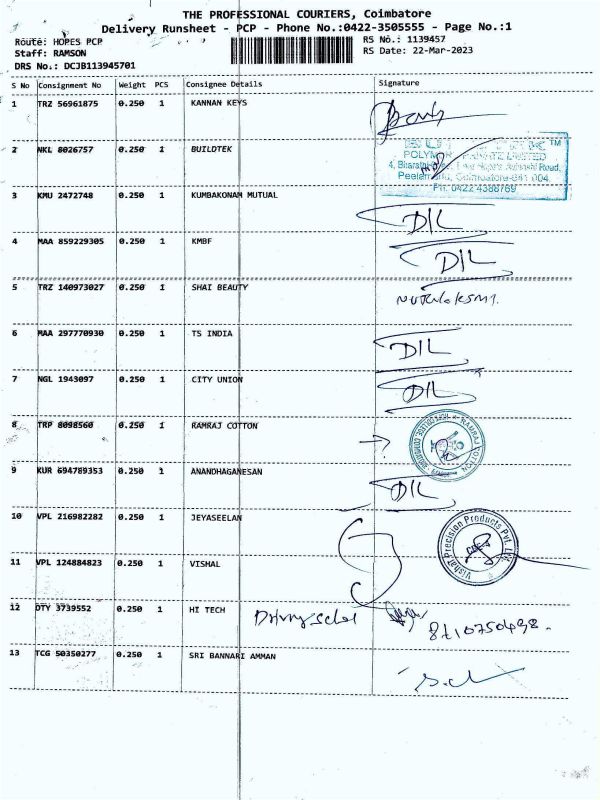 THE PROFESSIONAL COURIERS, Coimbatore
Delivery Runsheet - PCP - Phone No.:0422-3505555 - Page No.:1
Route: HOPES PCP
RS No.: 1139457
Staff: RAMSON
RS Date: 22-Mar-2023
DRS No.: DCJB113945701
S No Consignment No Weight PCS Consignee Details Signature
1 TRZ 56961875 0.250 1 KANNAN KEYS
2 NKL 8026757 0.250 1 BUILDTEK
Peelamedu, Coimbatore-641 004.
Ph: 0422 4388769
3 KMU 2472748 0.250 1 KUMBAKONAM MUTUAL
D/L
4 MAA 859229305 0.250 1 KMBF
D/L
5 TRZ 140973027 0.250 1 SHAI BEAUTY
6 MAA 297770930 0.250 1 TS INDIA
D/L
7 NGL 1943097 0.250 1 CITY UNION
D/L
8 TRP 8098560 0.250 1 RAMRAJ COTTON
RAMRAJ COTTON
9 KUR 694789353 0.250 1 ANANDHAGANESAN
D/L
10 VPL 216982282 0.250 1 JEYASEELAN
Vishal Precision Products Pvt. Ltd.
11 VPL 124884823 0.250 1 VISHAL
12 DTY 3739552 0.250 1 HI TECH
13 TCG 50350277 0.250 1 SRI BANNARI AMMAN